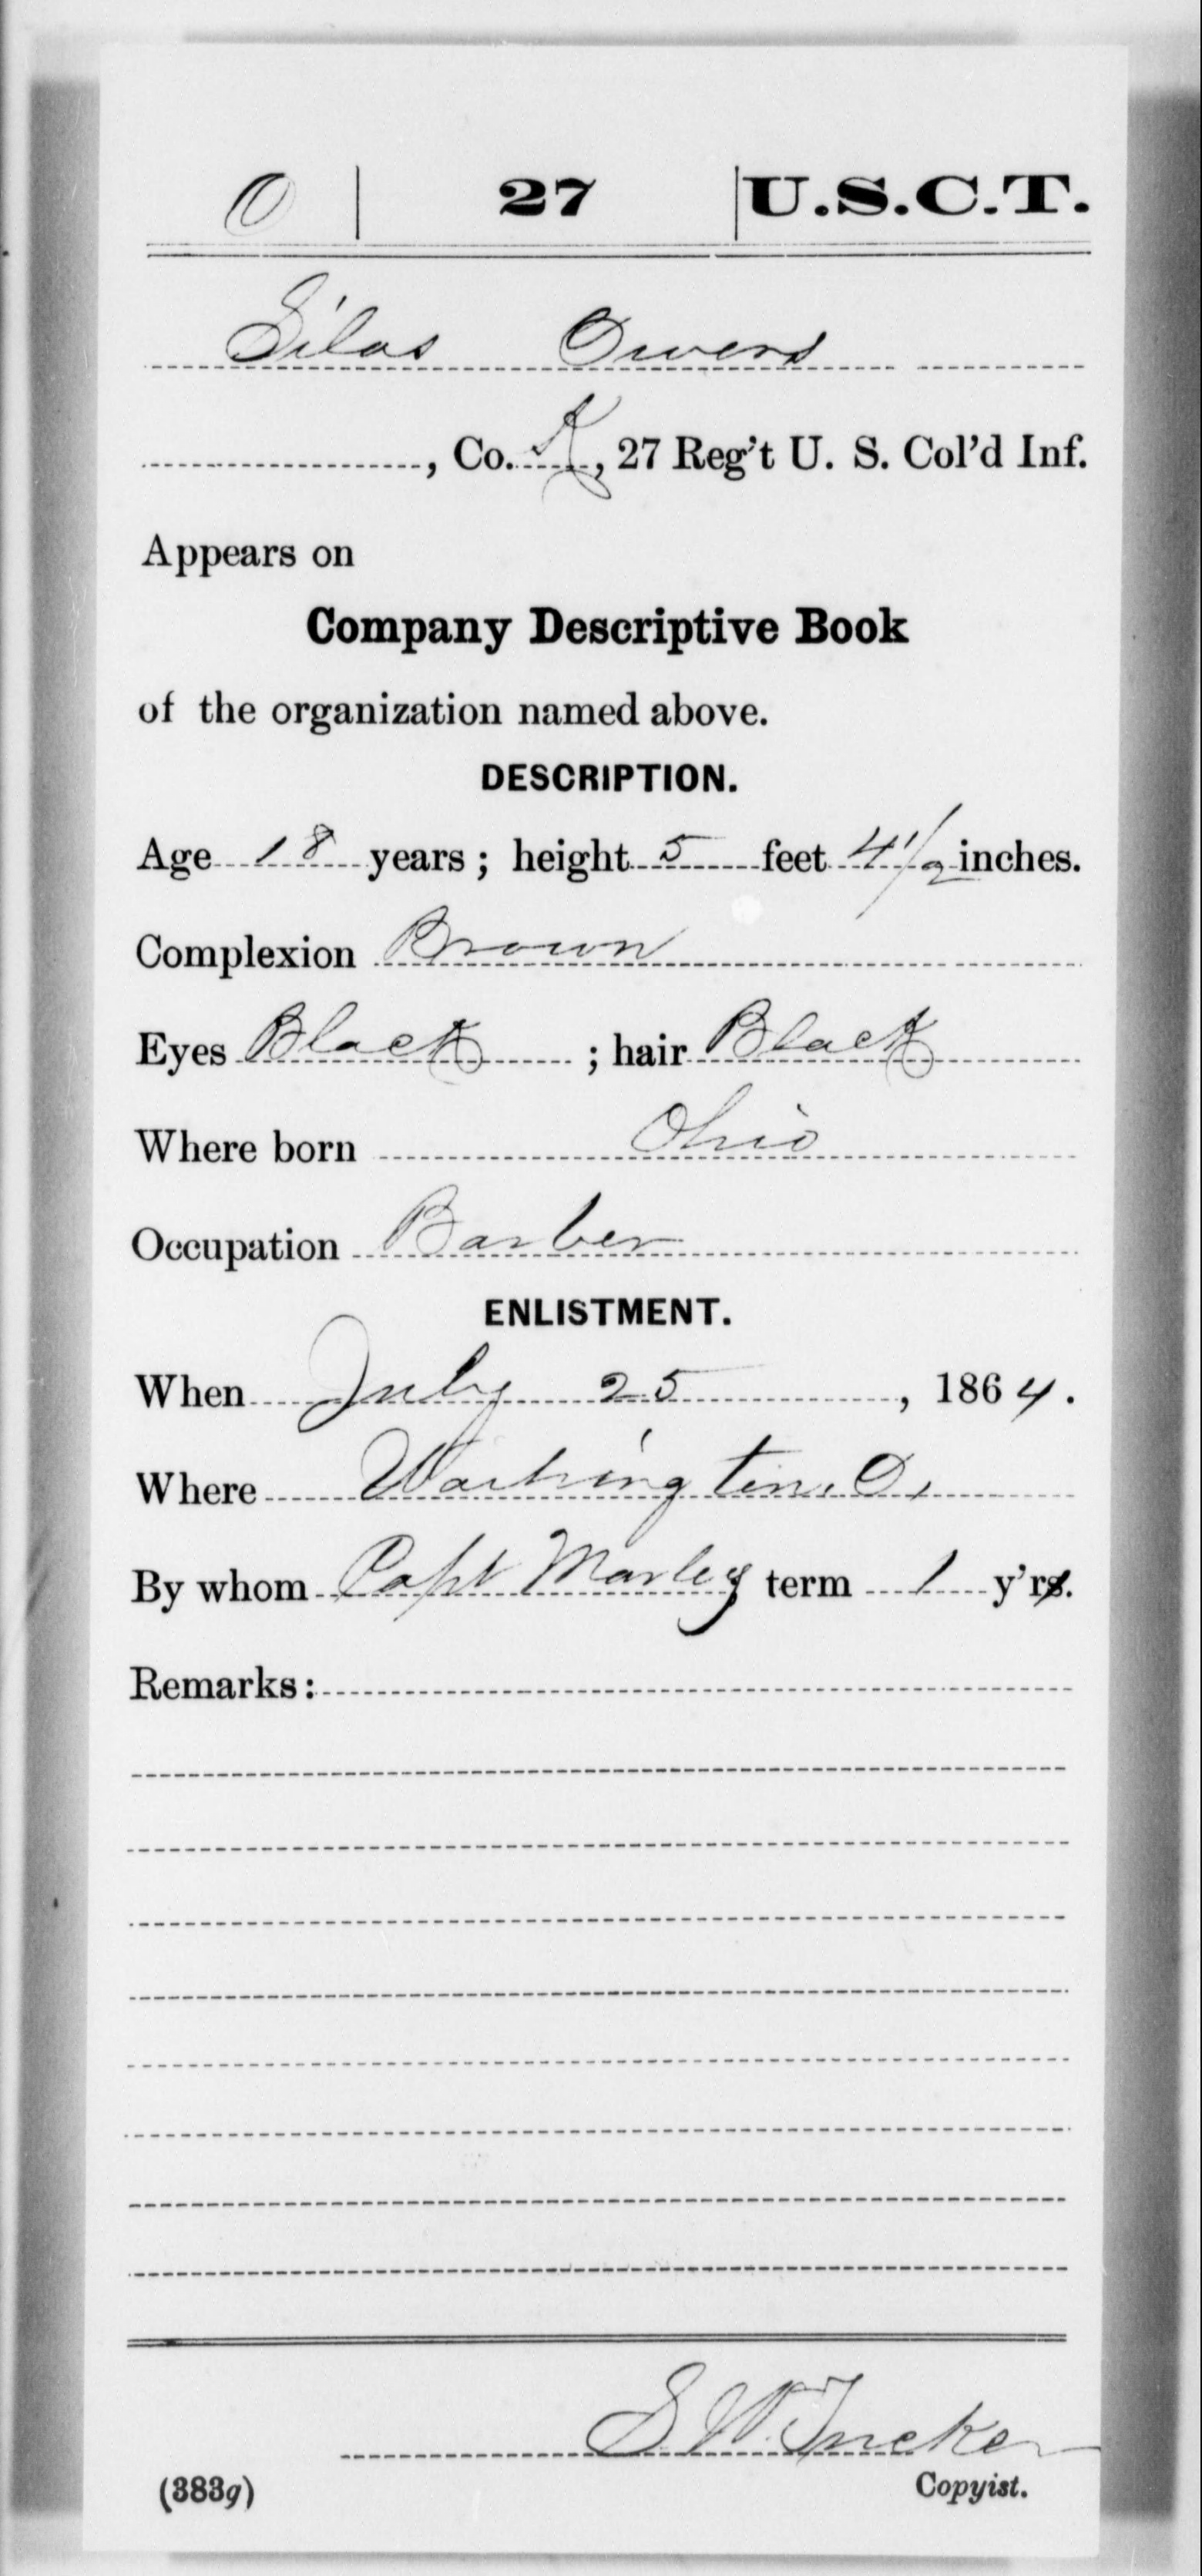 O | 27 | U.S.C.T.
Silas Owens
, Co. K, 27 Reg't U. S. Col'd Inf.
Appears on
Company Descriptive Book
of the organization named above.
DESCRIPTION.
Age 18 years; height 5 feet 4 1/2 inches.
Complexion Brown
Eyes Black ; hair Black
Where born Ohio
Occupation Barber
ENLISTMENT.
When July 25, 1864.
Where Washington, O.
By whom Capt Marley term 1 y'rs.
Remarks:
S. W. Tucker
(383g) Copyist.